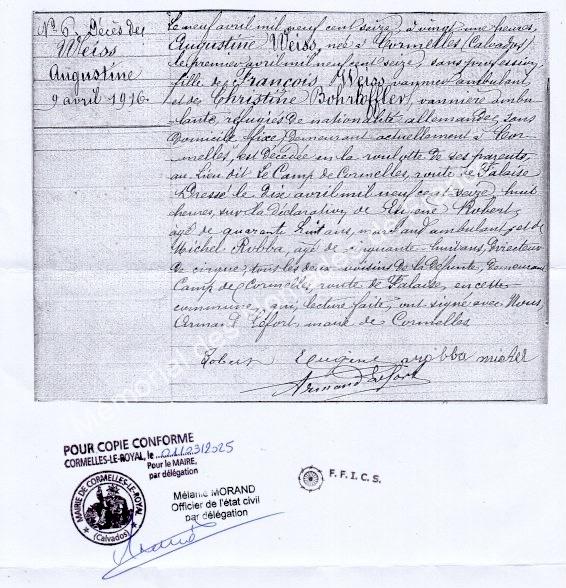 N° 6 Décès de
Weiss
Augustine
9 avril 1916.
Le neuf avril mil neuf cent seize, à vingt une heures,
Augustine Weiss, née à Cormelles (Calvados)
le premier avril mil neuf cent seize, sans profession,
fille de François Weiss vannier ambulant,
et de Christine Bohrtoffler, vannière ambu
lante, réfugiés de nationalité allemande, sans
domicile fixe, demeurant actuellement à Cor-
melles, est décédée en la roulotte de ses parents,
au lieu dit Le Camp de Cormelles, route de Falaise
Dressé le dix avril mil neuf cent seize, huit
heures, sur la déclaration de Eugène Robert,
agé de quarante huit ans, marchand ambulant et de
Michel Robba, agé de cinquante huit ans, Directeur
de cirque, tous les deux voisins de la défunte, demeurant
Camp de Cormelles, route de Falaise, en cette
commune, qui, lecture faite, ont signé avec Nous,
Armand Lefort maire de Cormelles
Robert Eugène robba michel
Armand Lefort
POUR COPIE CONFORME
CORMELLES-LE-ROYAL, le
Pour le MAIRE,
par délégation
MAIRIE DE CORMELLES-LE-ROYAL
(Calvados)
Mélanie MORAND
Officier de l'état civil
par délégation
F.F.I.C.S.